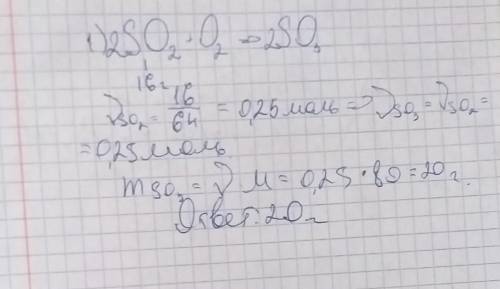 1) 2SO₂ + O₂ → 2SO₃
16г
νSO₂ = 16/64 = 0,25 моль => νSO₃ = νSO₂ =
= 0,25 моль
mSO₃ = ν M = 0,25 · 80 = 20 г.
Ответ: 20 г